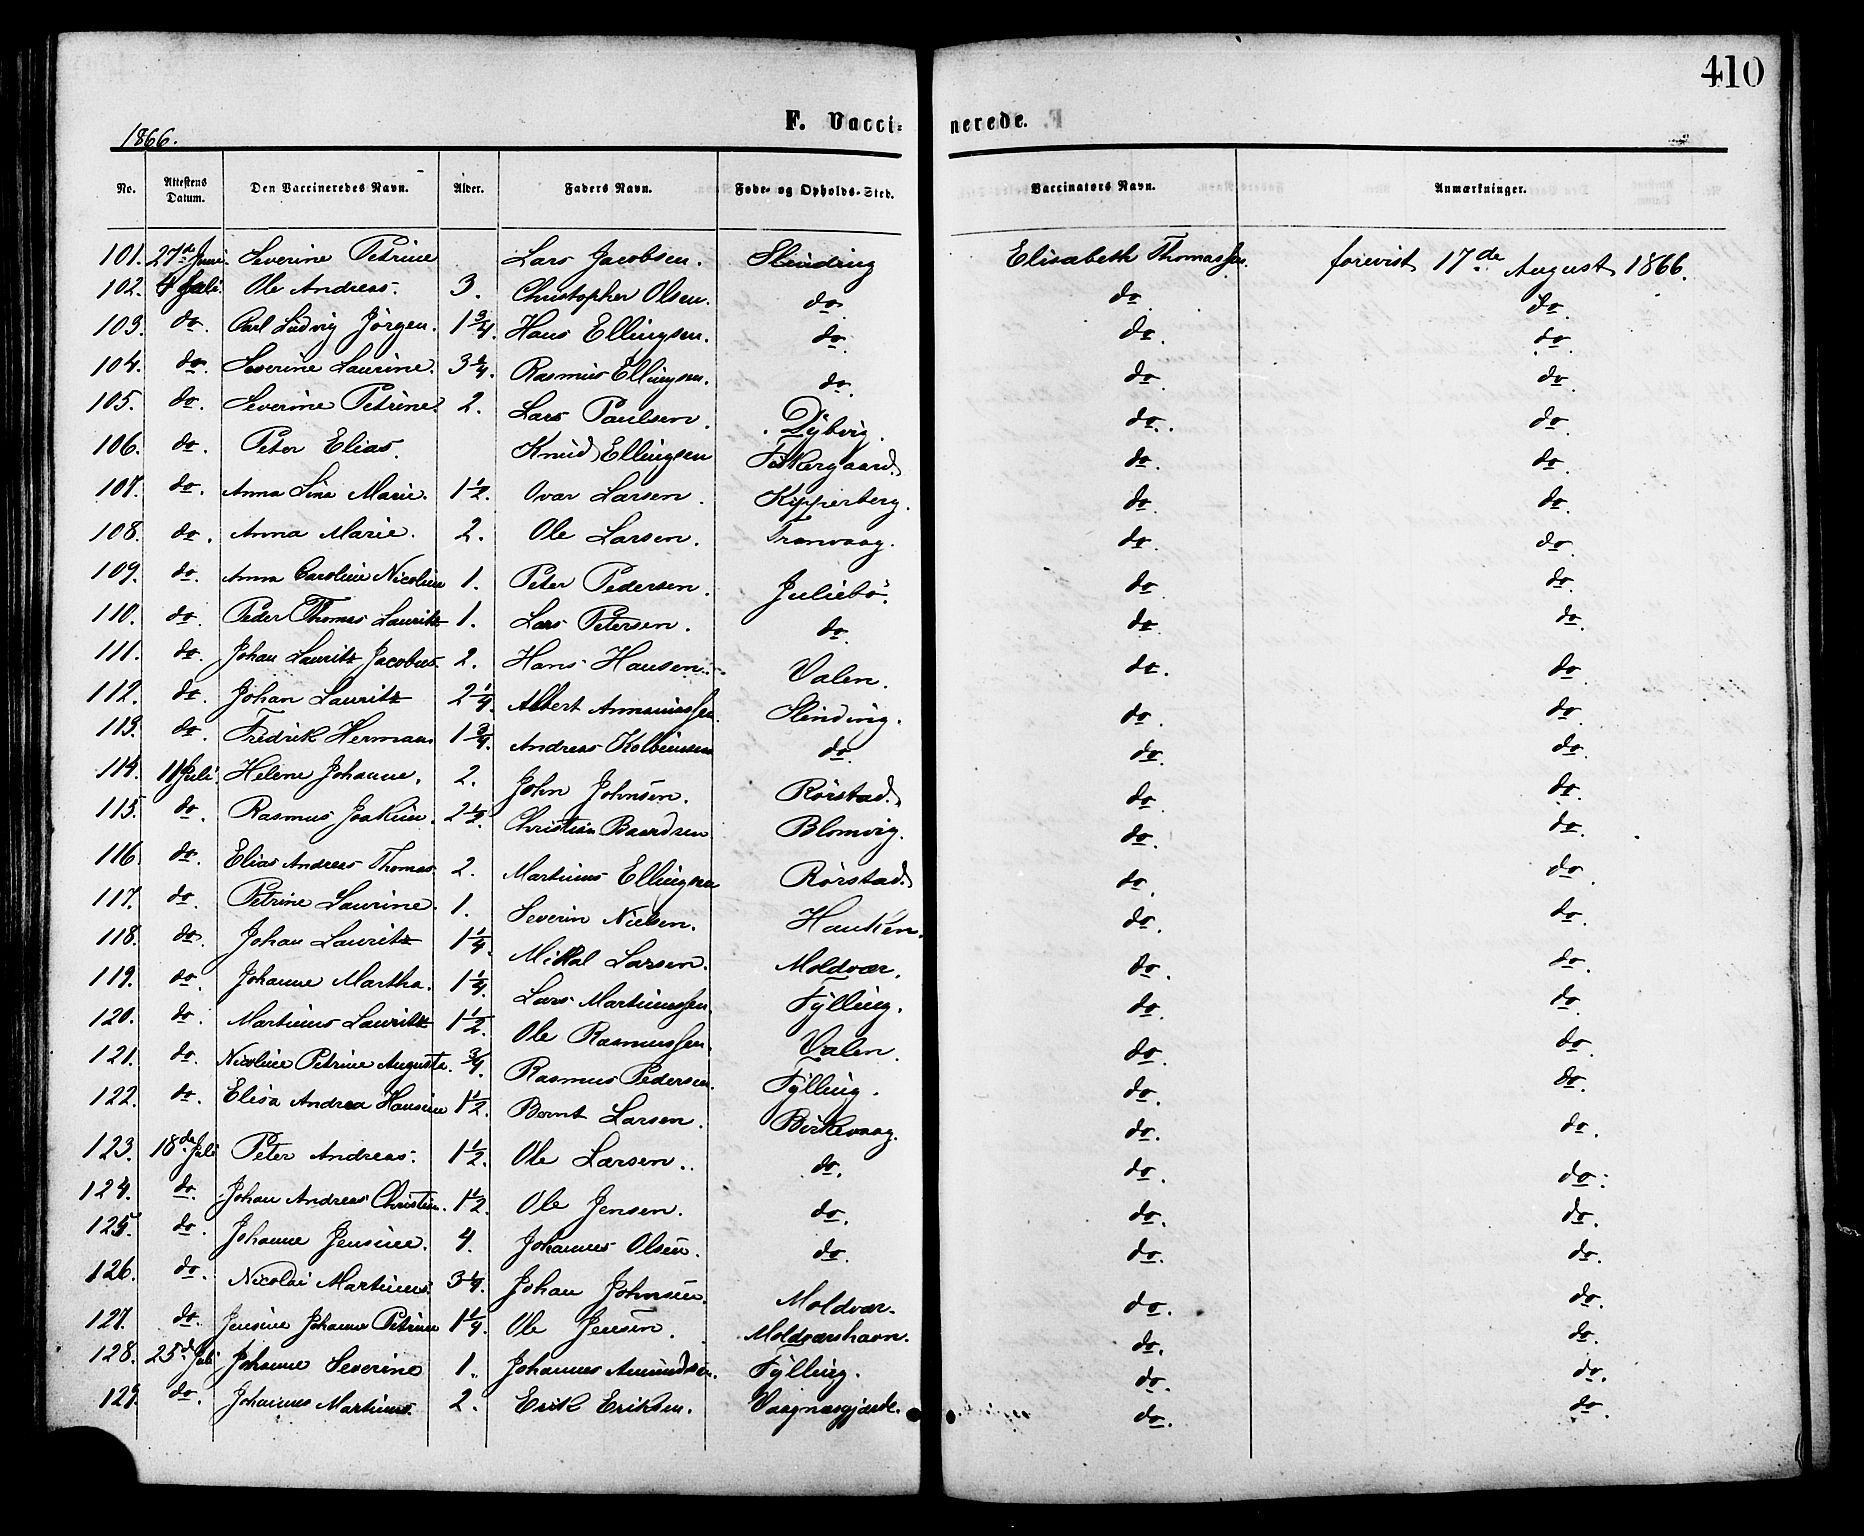 410
F. Vaccinerede.
1866.
No. Attestens Datum. Den Vaccineredes Navn. Alder. Faders Navn. Føde- og Opholds-Sted. Vaccinators Navn. Anmærkninger.
101. 27de Juni. Severine Petrine Lars Jacobsen. Slinding Elisabeth Thomassen. forevist 17de August 1866.
102. 4 Juli. Ole Andreas. 3. Christopher Olsen. do. do. do.
103. do. Carl Ludvig Jörgen. 1 3/4. Hans Ellingsen. do. do. do.
104. do. Severine Laurine. 3 3/4. Rasmus Ellingsen. do. do. do.
105. do. Severine Petrine. 2. Lars Paulsen. Dybvig. do. do.
106. do. Peter Elias. Knud Ellingsen Fiskergaard. do. do.
107. do. Anna Lina Marie. 1 1/2. Ovar Larsen. Kipperberg. do. do.
108. do. Anna Marie. 2. Ole Larsen. Tranvaag. do. do.
109. do. Anna Caroline Nicoline 1. Peter Pedersen. Juliebö. do. do.
110. do. Peder Thomas Lauritz 1. Lars Petersen. do. do. do.
111. do. Johan Lauritz Jacobus. 2. Hans Hansen. Valen. do. do.
112. do. Johan Lauritz 2 1/4. Albert Annaniassen. Slinding. do. do.
113. do. Fredrik Herman 1 3/4. Andreas Kolbeinsen do. do. do.
114. 11 Juli. Helene Johanne. 2. John Johnsen. Rörstad. do. do.
115. do. Rasmus Joakim. 2 1/2. Christian Baardsen Blomvig. do. do.
116. do. Elias Andreas Thomas. 2. Martinus Ellingsen Rörstad. do. do.
117. do. Petrine Laurine. 1. Severin Nielsen. Hauken. do. do.
118. do. Johan Lauritz 1 1/4. Mikkal Larsen. Moldvær. do. do.
119. do. Johanne Martha. 1 1/4. Lars Martinussen. Fylling. do. do.
120. do. Martinus Lauritz 1 1/2. Ole Rasmussen. Valen. do. do.
121. do. Nicoline Petrine Auguste. 3/4. Rasmus Pedersen. Fylling. do. do.
122. do. Elisa Andrea Hansine 1 1/2. Bernt Larsen. Birkevaag. do. do.
123. 18de Juli Peter Andreas. 1 1/2. Ole Larsen. do. do. do.
124. do. Johan Andreas Christian. 1 1/2. Ole Jensen. do. do. do.
125. do. Johanne Jensine. 4. Johannes Olsen. do. do. do.
126. do. Nicolai Martinus. 3 1/4. Johan Johnsen. Moldvær. do. do.
127. do. Jensine Johanne Petrine 1 1/4. Ole Jensen. Moldværshavn. do. do.
128. 25de Juli Johanne Severine 1. Johannes Amundsen. Fylling. do. do.
129. do. Johannes Martinus. 2. Erik Eriksen. Vaagnæsgjærde. do. do.